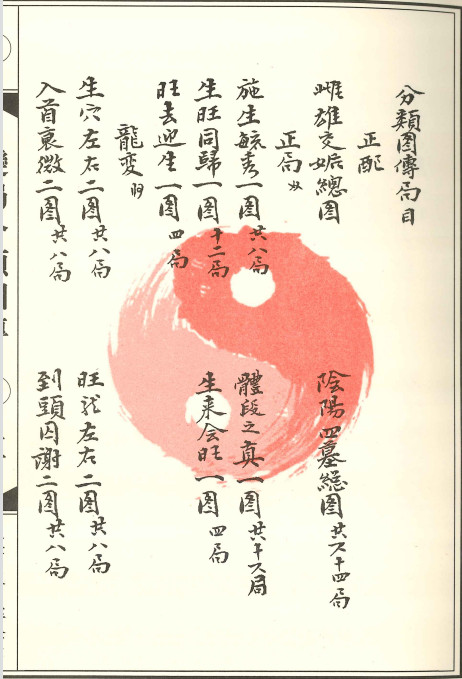 分類图傳局目
正配
雌雄交媾總图 陰陽四墓総图共六十四局
正局
施生毓秀一图共八局 體段之真一图共十六局
生旺同歸一图十二局 生来会旺一图四局
旺去迎生一图四局
龍变
生穴左右二图共八局 旺龙左右二图共八局
入首衰微二图共八局 到頭囚謝二图共八局